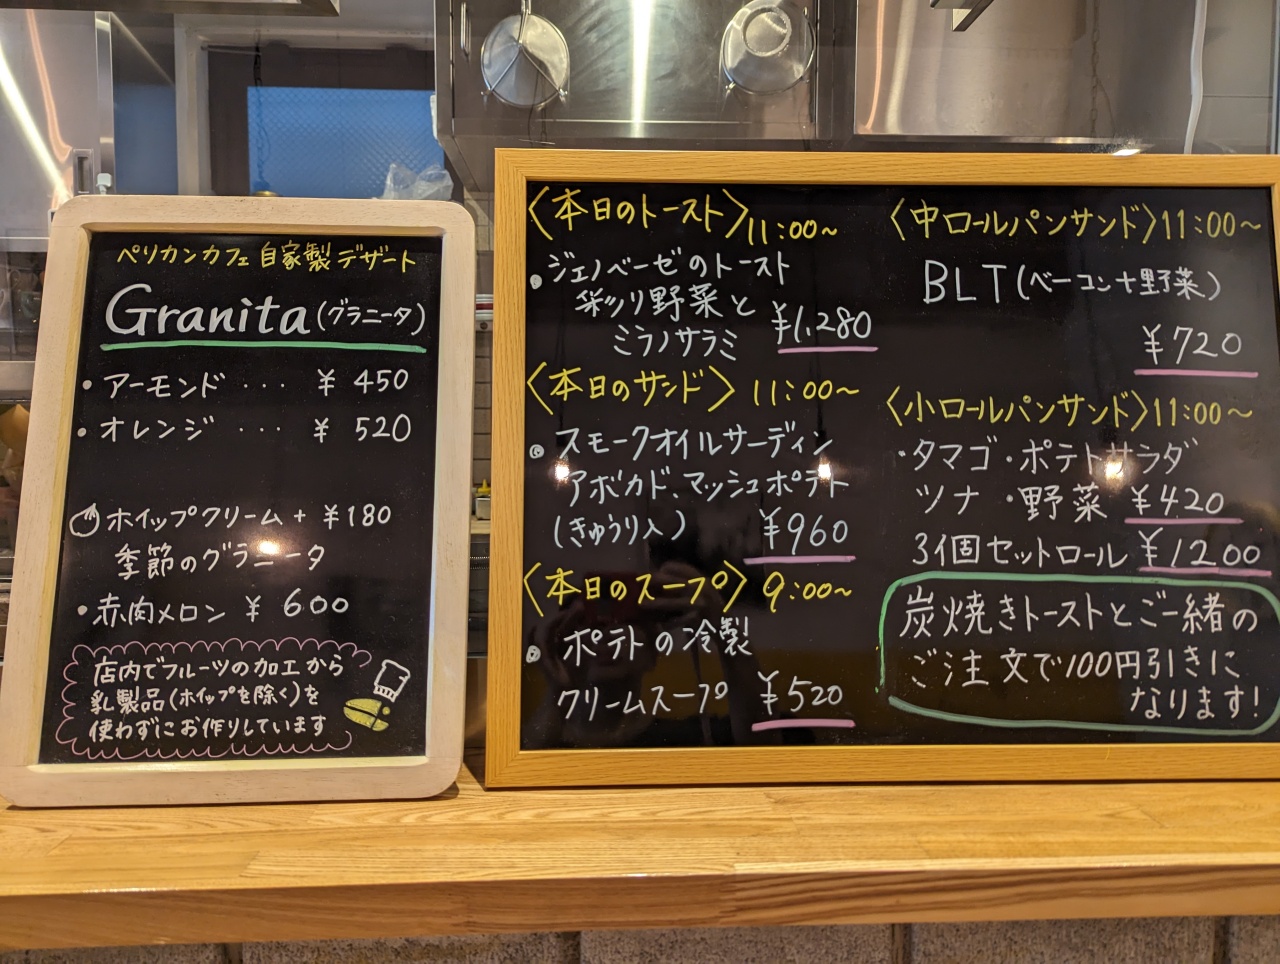 ペリカンカフェ 自家製 デザート
Granita (グラニータ)
・アーモンド ... ¥ 450
・オレンジ ... ¥ 520
ホイップクリーム + ¥180
季節のグラニータ
・赤肉メロン ¥ 600
店内でフルーツの加工から
乳製品(ホイップを除く)を
使わずにお作りしています
〈本日のトースト〉11:00~
・ジェノベーゼのトースト
彩り野菜と
ミラノサラミ ¥1,280
〈本日のサンド〉 11:00~
・スモークオイルサーディン
アボカド、マッシュポテト
(きゅうり入) ¥960
〈本日のスープ〉 9:00~
・ポテトの冷製
クリームスープ ¥520
〈中ロールパンサンド〉11:00~
BLT(ベーコン+野菜)
¥720
〈小ロールパンサンド〉11:00~
・タマゴ・ポテトサラダ
ツナ ・野菜 ¥420
3個セットロール ¥1200
炭焼きトーストとご一緒の
ご注文で100円引きに
なります!